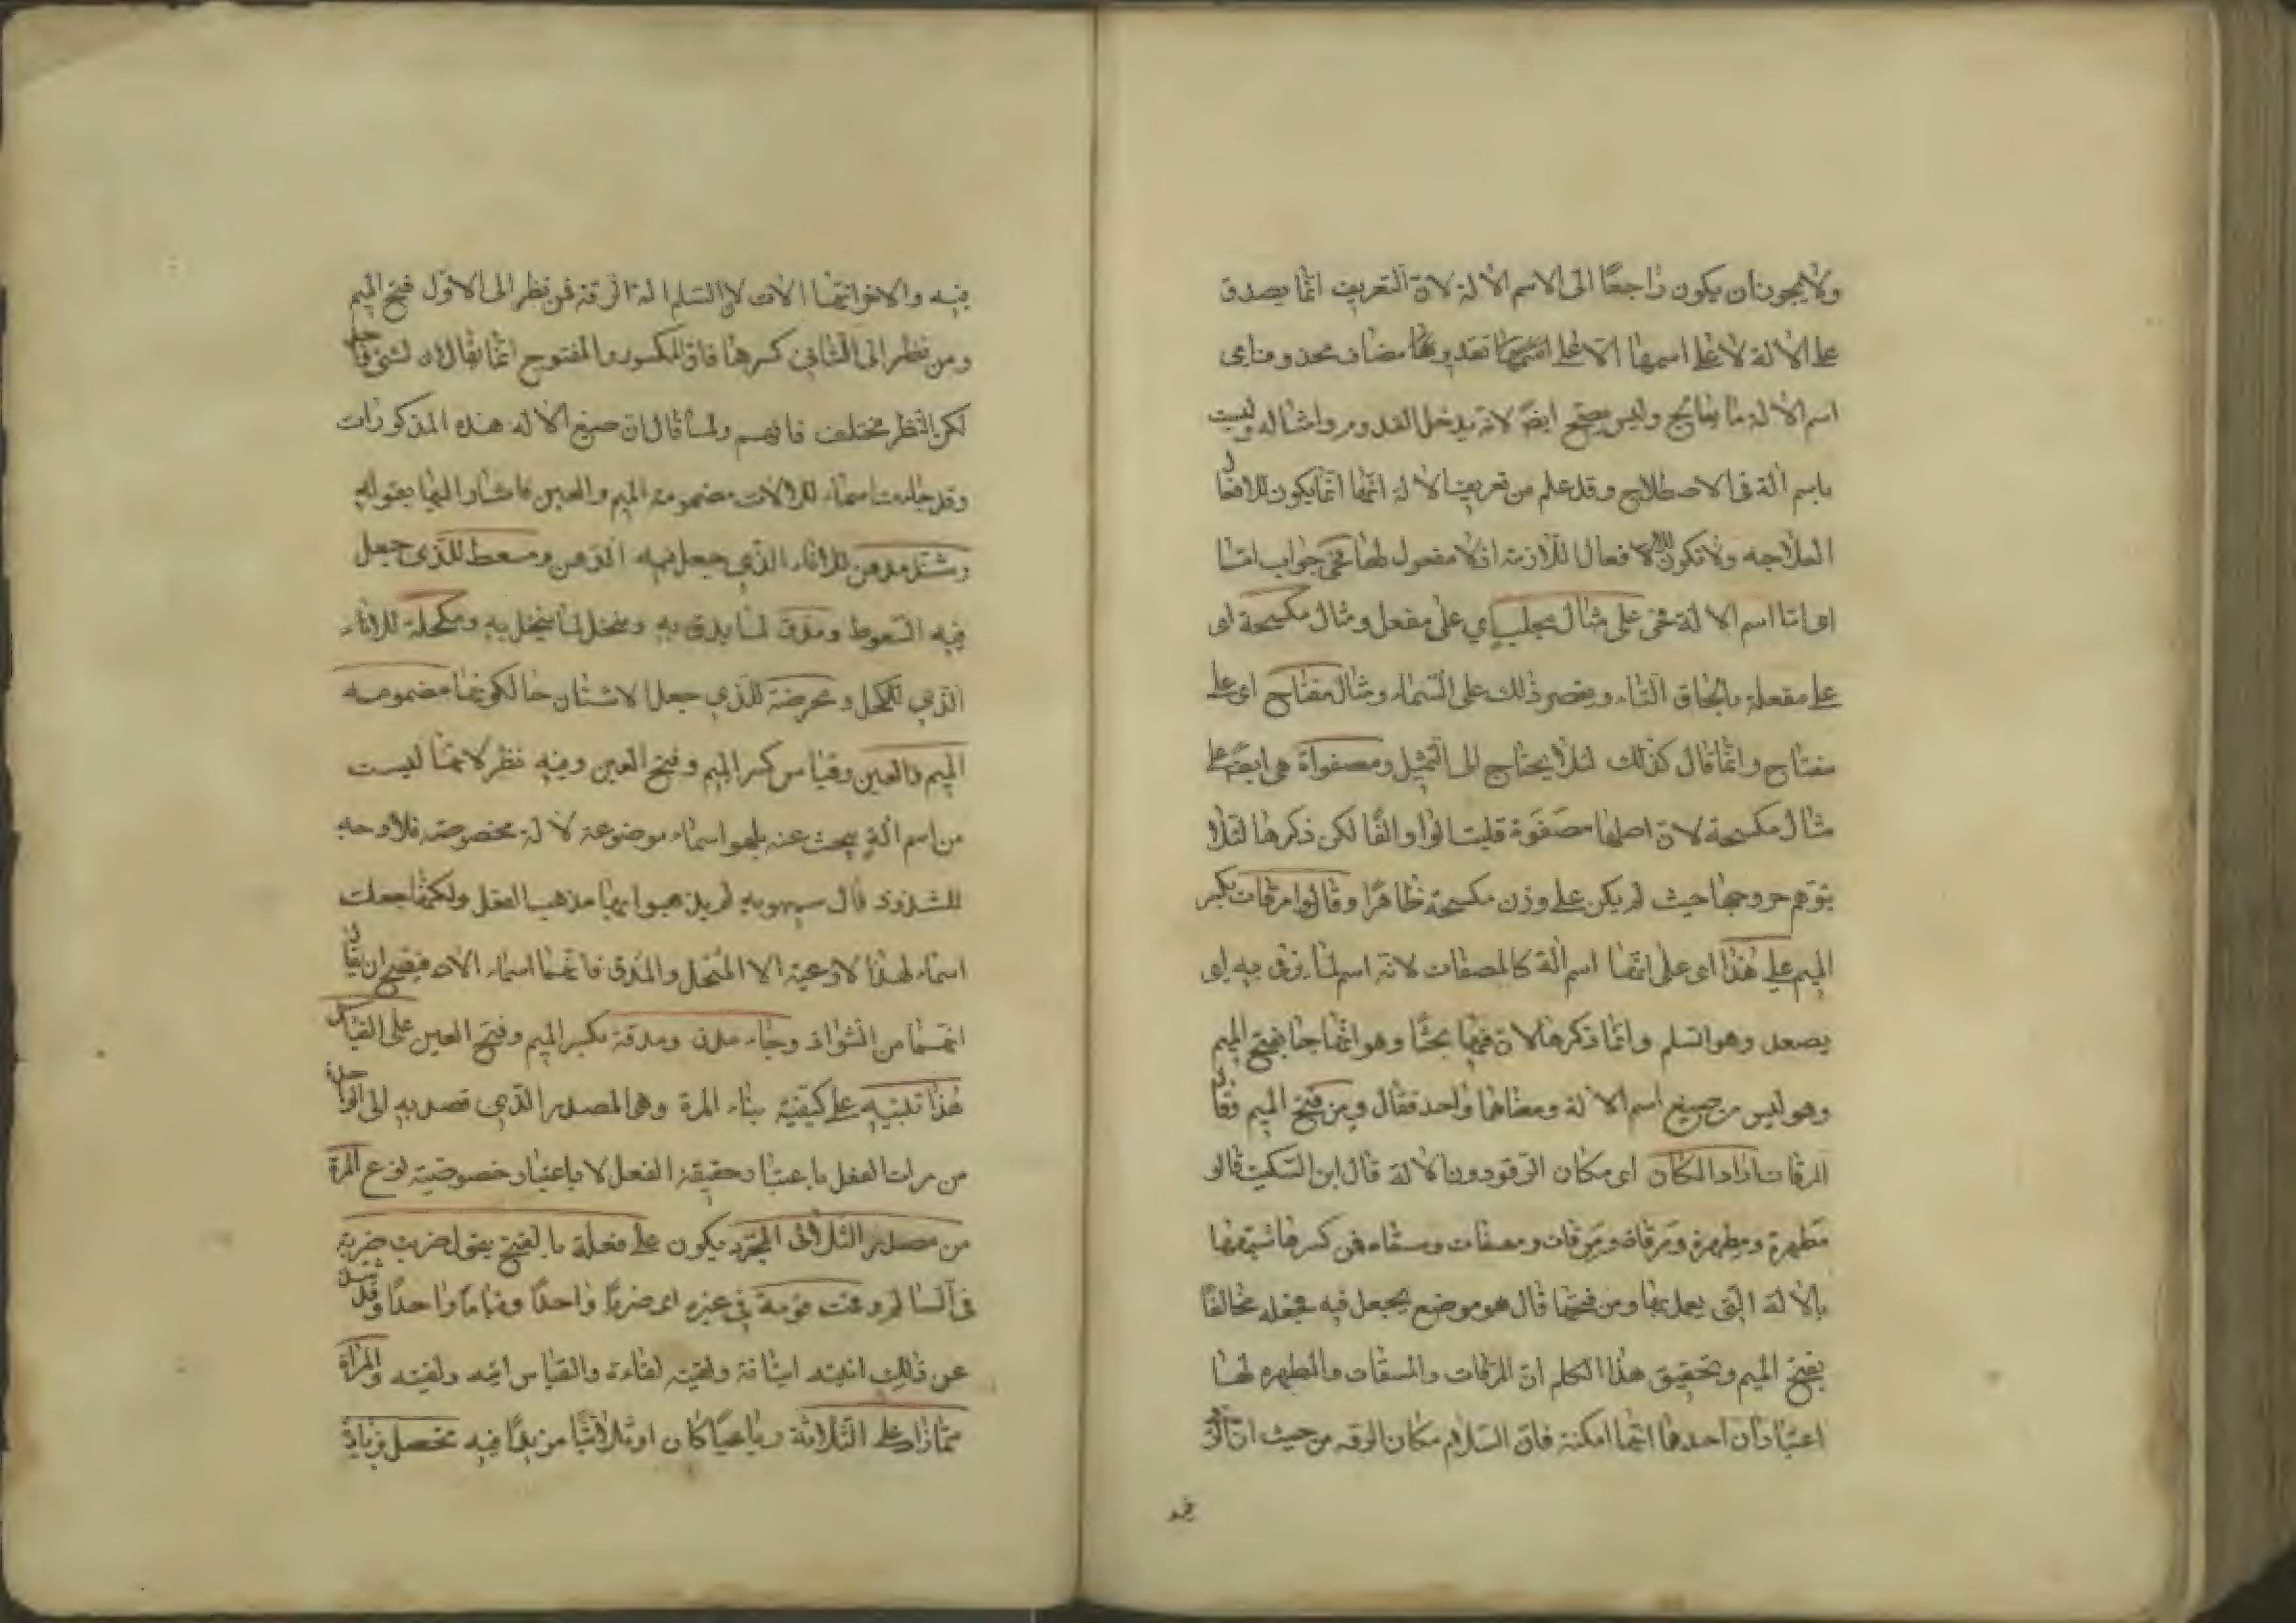 ولا يجوز ان يكون راجعًا الى الاسم الالة لان التعريف انما يصدق
على الالة لا على اسمها الا على تقدير مضاف محذوف اى
اسم الالة ما يعالج وليس بصحيح ايضًا لانه يدخل القدوم وامثاله وليست
باسم الة فى الاصطلاح وقد علم من تعريف الالة انها انما يكون للافعا
ل
العلاجيه ولا تكون للافعال اللازمة اذ لا مفعول لها فجئ جواب امّا
اى امّا اسم الالة فجئ على مثال محلب اي على مفعل ومثال مكسحة اى
على مفعلة بالحاق التاء ويقصر ذلك على السماء ومثال مفتاح اى على
مفتاح وانما قال كذلك لئلا يحتاج الى التمثيل ومصفواة هى ايضًا على
مثال مكسحة لان اصلها مصفوة قلبت الواو الفًا لكن ذكرها لئلا
يتوهم خروجها حيث لم يكن على وزن مكسحة ظاهرًا وقالوا مرقات بكسر
الميم على هذا اى على انها اسم الة كالمصفات لانه اسم لما يرقى به اى
يصعد وهو السلم وانما ذكرها لان فيها بحثًا وهو انها جا بفتح الميم
وهو ليس من صيغ اسم الالة ومعناها واحد فقال ومن فتح الميم وقا
المرقات اراد المكان اى مكان الرقو دون الالة قال ابن السكيت قالو
مطهرة ومطهرة ومرقاة ومرقات ومسقات ومسقاء فمن كسرها شبهها
بالالة التى يعمل بها ومن فتحها قال هو موضع يجعل فيه فجعله مخالفًا
بفتح الميم وتحقيق هذا الكلام ان المرقات والمسقات والمطهره لها
اعتباران احدها انها امكنة فان السلام مكان الرقى من حيث ان
فيه والاخر انها الات لان السلم الة الرقة فمن نظر الى الاول فتح الميم
ومن نظر الى الثانى كسرها فان المكسور والمفتوح انما يقالان لشئ واحد
لكن النظر مختلف فافهم ولما قال ان صيغ الالة هذه المذكورات
وقد جاءت اسماء للالات مضمومة الميم والعين فاشار اليها بقوله
وشذ مدهن للاناء الذي جعل فيه الدهن ومسعط للذى جعل
فيه السعوط ومدق لما يدق به ومنخل لما ينخل به ومكحلة للاناء
الذي للكحل ومحرضة للذي جعل الاشنان حالكونها مضمومة
الميم والعين وقياس كسر الميم وفتح العين وفيه نظر لانها ليست
من اسم الة يبحث عنه بل هو اسماء موضوعة لالة مخصوصة فلا وجه
للشذوذ قال سيبويه لم يذهبوا بها مذهب الفعل ولكنها جعلت
اسماء لهذا الاوعية الا المنخل والمدق فانهما اسماء الالات فيصح ان يقا
ل
انهما من الشواذ وجاء مدق ومدقة بكسر الميم وفتح العين على القياس
هذا تنبيه على كيفية بناء المرة وهى المصدر الذي قصد به الى الواحدة
من مرات الفعل باعتبار حقيقة الفعل لا باعتبار خصوصية نوع المرة
من مصدر الثلاثى المجرد يكون على فعلة بالفتح يقول ضربت ضربة
فى السالم وقمت قومة في غيره اى ضربًا واحدًا وقيامًا واحدًا وقد شذ
عن ذلك اتيته اتيانة ولقيته لقاءة والقياس اتية ولقية والمراة
مما زاد على الثلاثة رباعيًا كان او ثلاثيًا مزيدًا فيه تحصل بزيادة